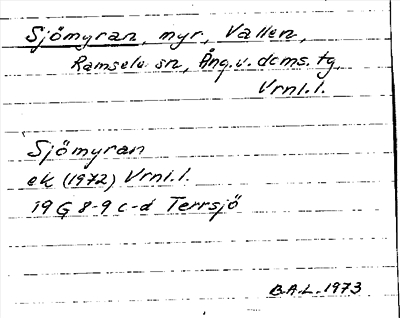 Sjömyran, myr, Vallen,
Ramsele sn, Ång.v. dcms. tg.
Vrnl.l.
Sjömyran
ek (1972) Vrnl.l.
19 G 8-9 c-d Terrsjö
B.A.L. 1973